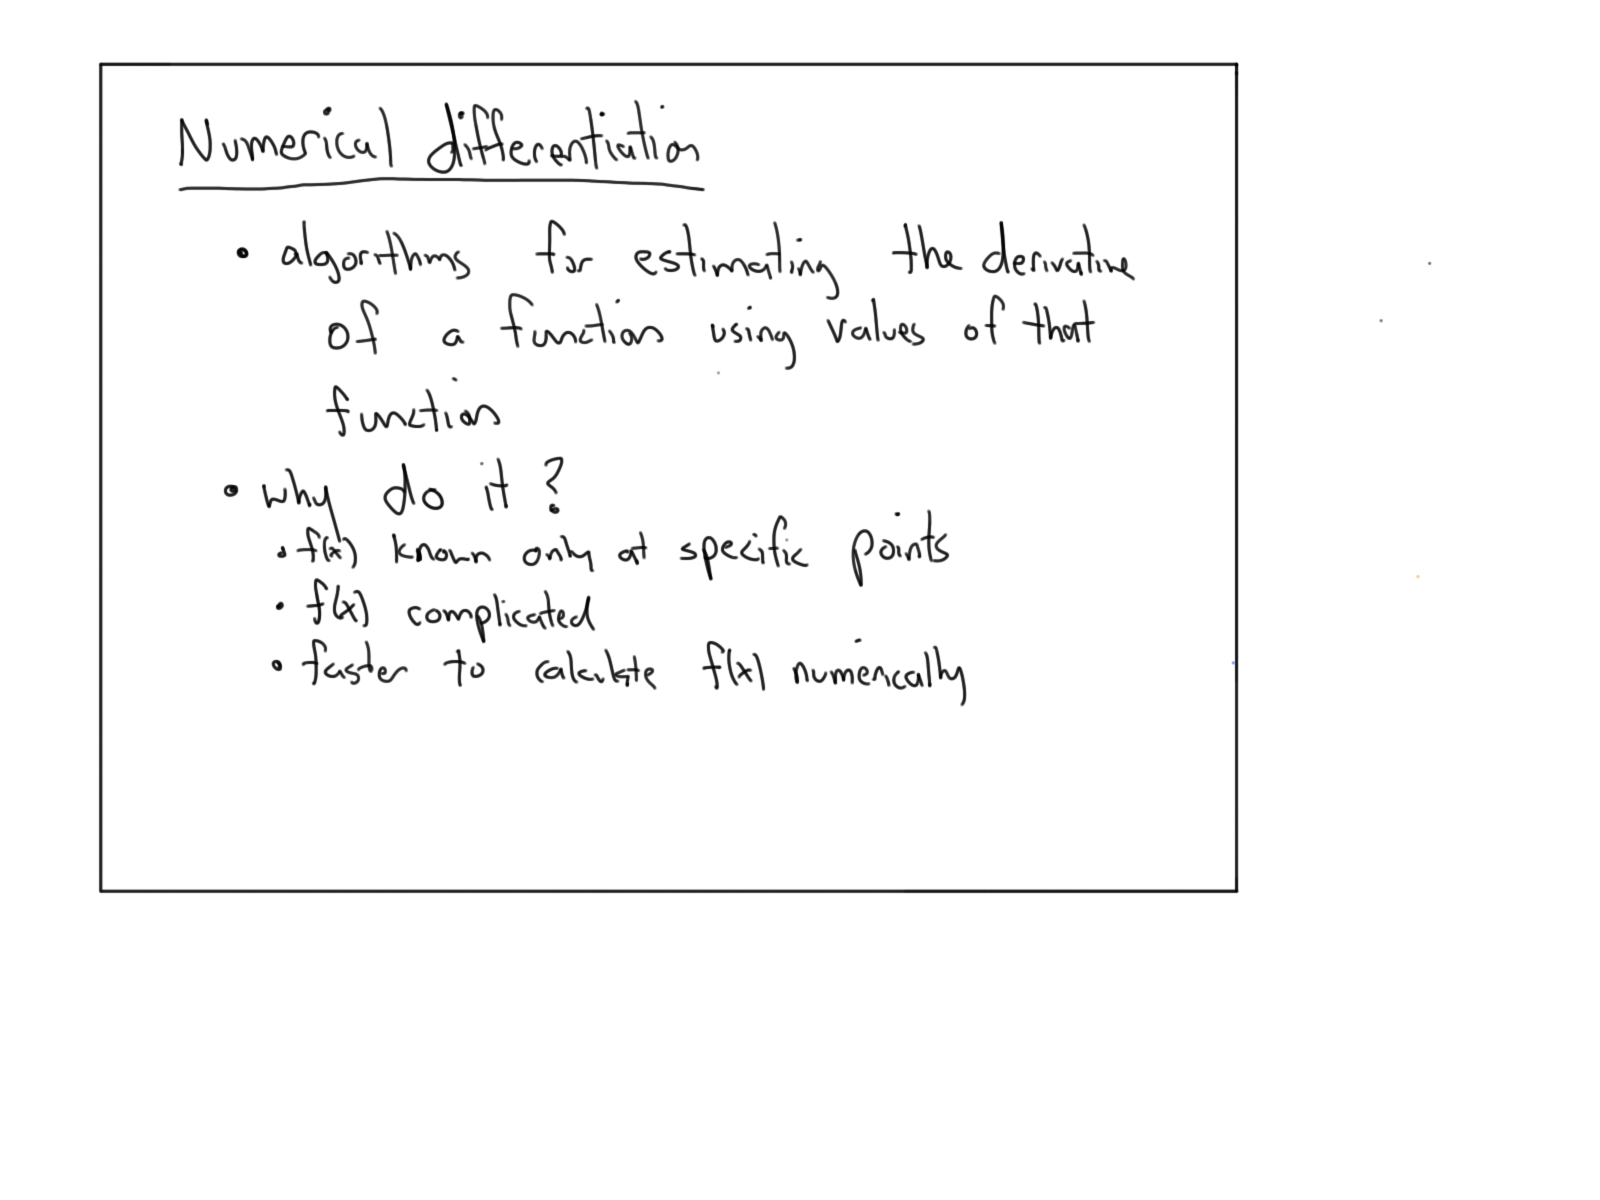 Numerical differentiation
• algorithms for estimating the derivative
of a function using values of that
function
• why do it?
• f(x) known only at specific points
• f(x) complicated
• faster to calculate f(x) numerically